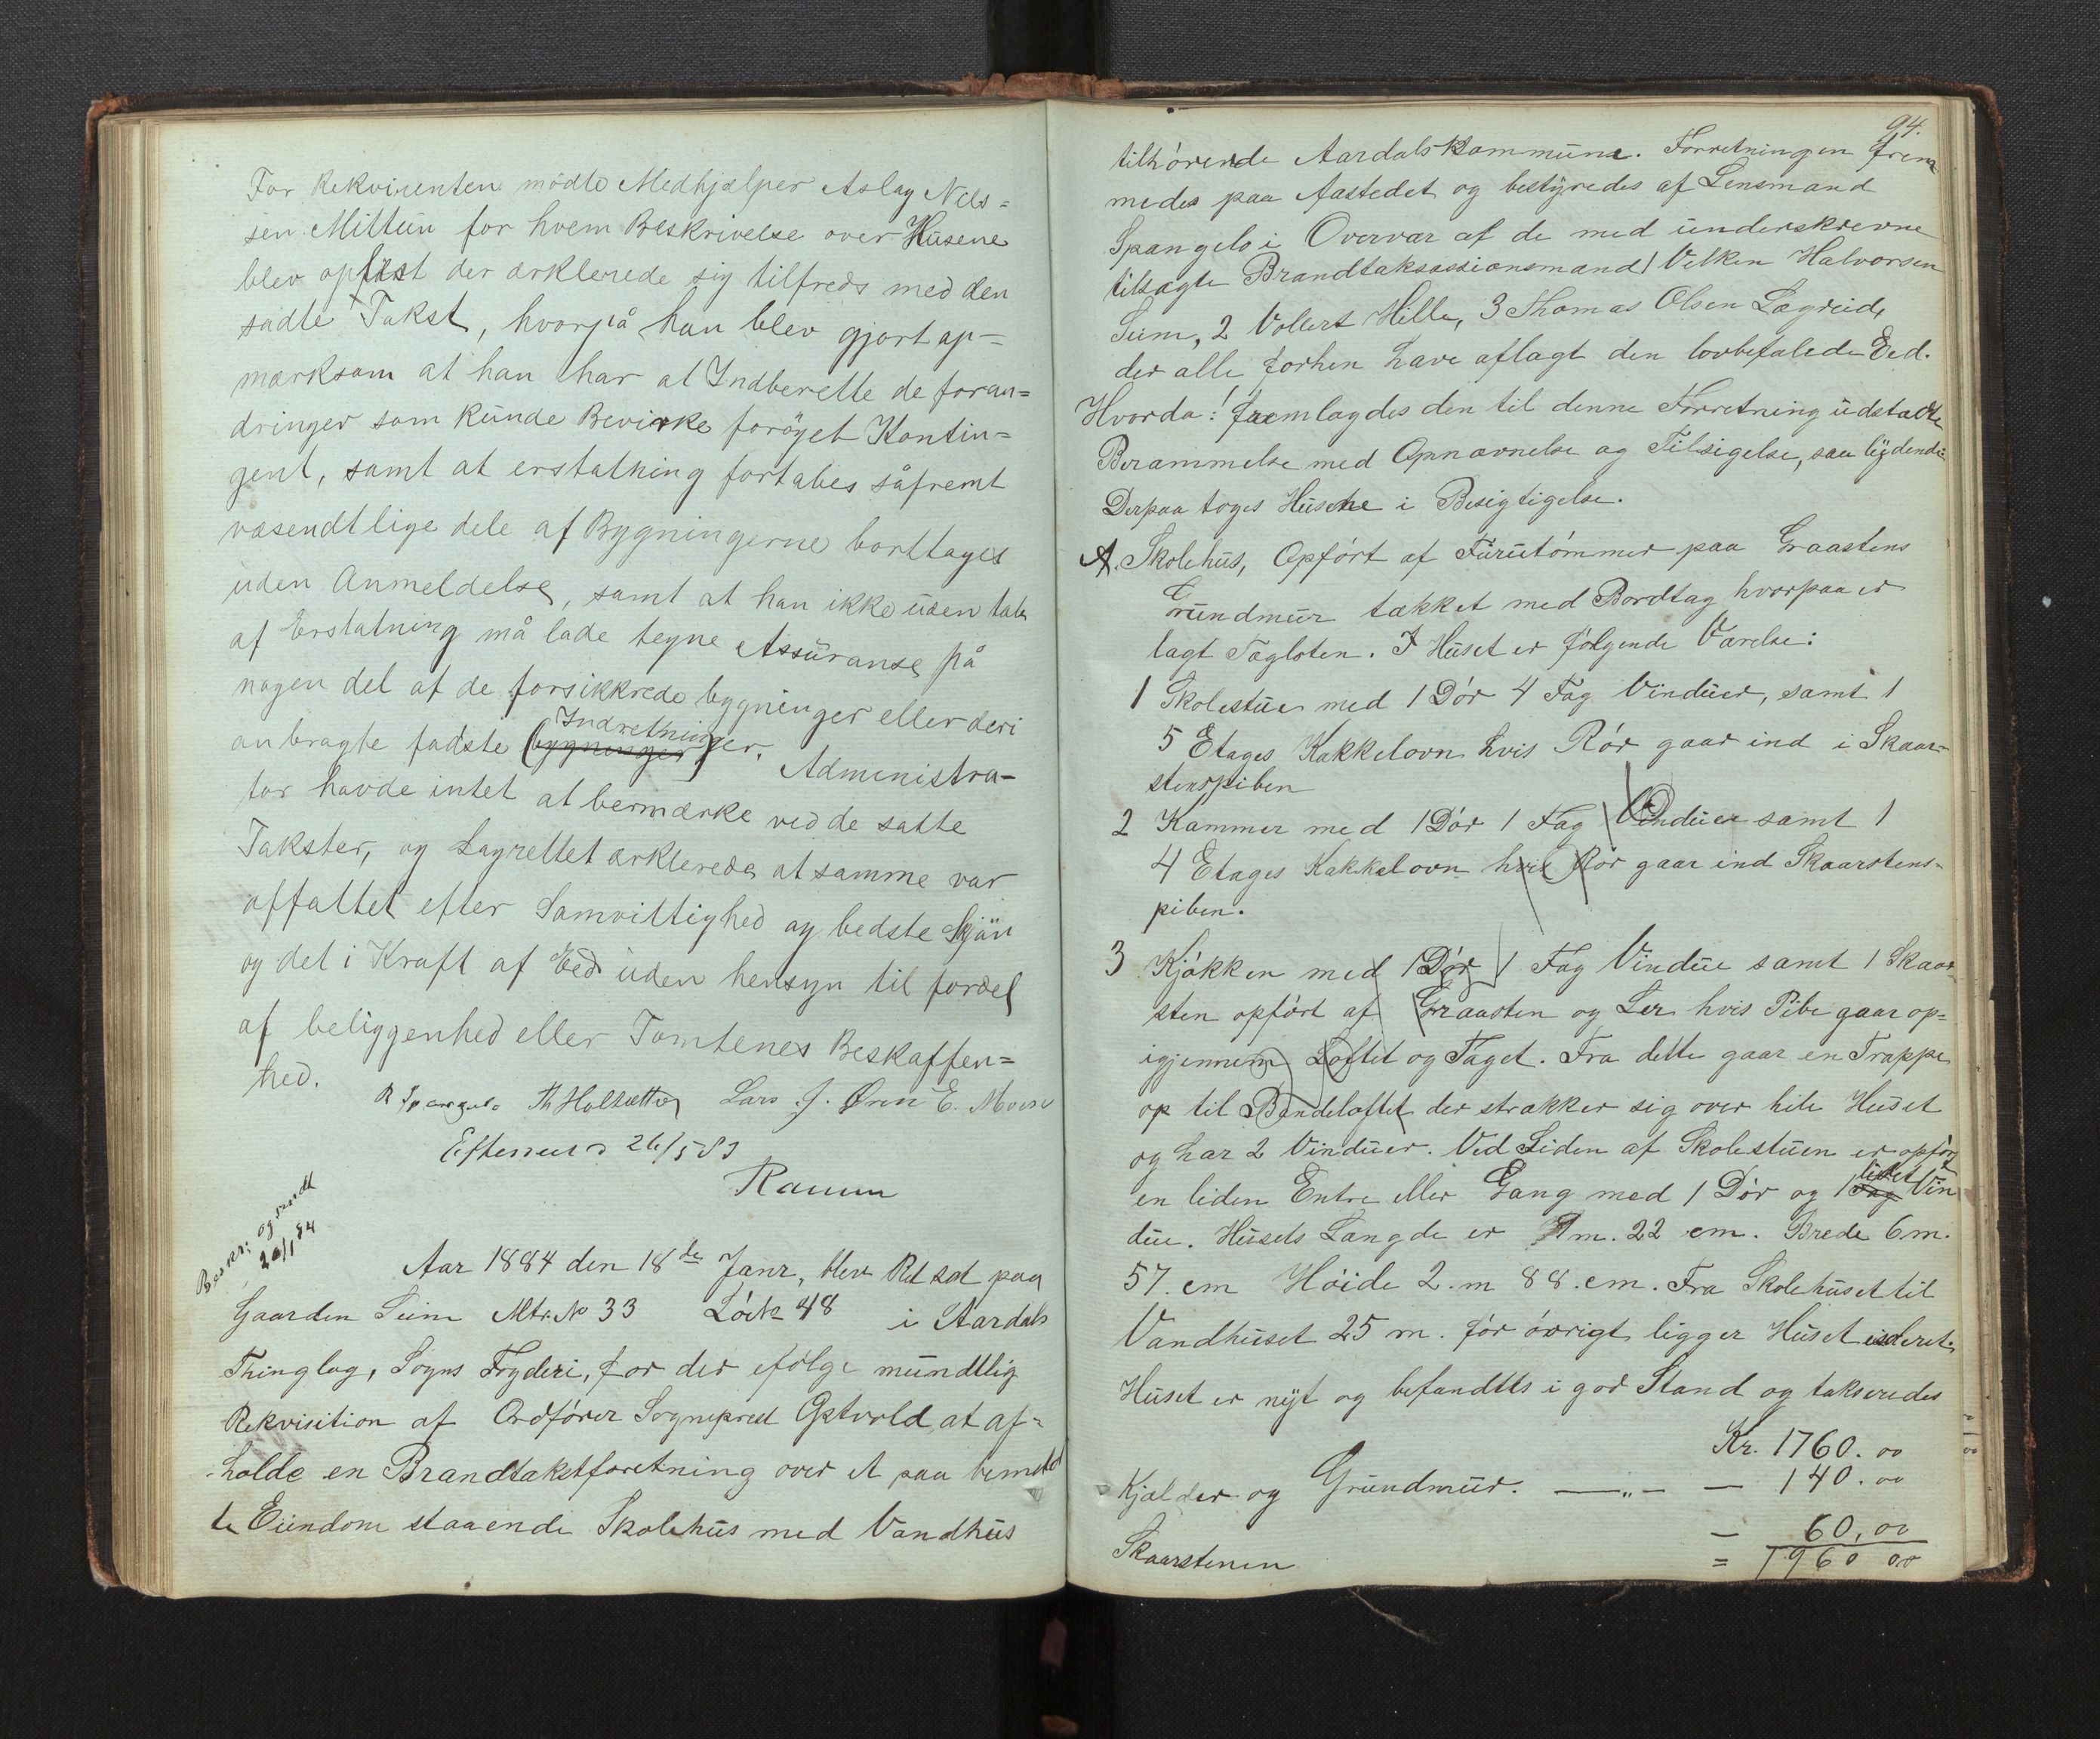 For Rekvirenten mödte Medhjælper Aslag Nils=
sen Mittun for hvem Beskrivelse over Husene
blev oplæst der ærklerede sig tilfreds med den
sadte Takst, hvorpå han blev gjort op=
mærksom at han har at Indberette de foran=
dringer som kunde Bevirke forøget Kontin=
gent, samt at erstatning fortabes såfremt
væsendtlige dele af Bygningerne borttages
uden Anmeldelse, samt at han ikke uden tab
af Erstatning må lade tegne Assuranse på
nogen del af de forsikkrede bygninger eller deri
Indretninger
anbragte fadste bygninger. Administra-
tor havde intet at bemærke ved de satte
Takster, og Lagrettet ærklerede at samme var
affattet efter Samvittighed og bedste Skjön
og det i Kraft af Eed uden hensyn til fordel
af beliggenhed eller Tomtenes Beskaffen=
hed.
R Spangelo Th Holsætter Lars J. Øren E. Moen
Efterseet 26/5 83
Ramm
Beskr: og sendt
20/1 84
Aar 1884 den 18de Janr, blev Ret sat paa
Gaarden Seim Mtr. No 33 Löbe No 48 i Aardals
Thinglag, Sogns Fogderi, for der efölge mundtlig
Rekvisition af Ordförer Sogneprest Gjetvold at af=
holde en Brandtakstforretning over et paa bemeld
te Eiindom staaende Skolehus med Vandhus
94.
tilhörende Aardals Kommune. Forretningen frem
medes paa Aastedet og bestyredes af Lensmand
Spangelo i Overvær af de med underskrevne
tilsagte Brandtaksasionsmænd 1 Vilken Halvorsen
Seim, 2 Vollert Hille, 3 Thomas Olsen Lægreid,
der alle forhen have aflagt den lovbefalede Eed.
Hvorda: fremlagdes den til denne Forretning udstædte
Berammelse med Opnævnelse og Tilsigelse, saa lydende:
Derpaa toges Husene i Besigtigelse.
A. Skolehus, Opfört af Furutömmer paa Graastens
Grundmur tækket med Bordtag hvorpaa er
lagt Taglsten. I Huset er fölgende Værelse:
1 Skolestue med 1 Dör 4 Fag Vinduer, samt 1
5 Etages Kakkelovn hvis Rör gaar ind i Skaar-
stenspiben
2 Kammer med 1 Dör 1 Fag Vinduer samt 1
4 Etages Kakkelovn hvis Rör gaar ind Skaarstens-
piben.
3 Kjökken med 1 Dör 1 Fag Vindue samt 1 Skaar
sten opfört af Graasten og Ler hvis Pibe gaar op=
igjennem Loftet og Taget. Fra dette gaar en Trappe
op til Bindeloftet der strækker sig over hele Huset
og har 2 Vinduer. Ved Siden af Skolestuen er opfört
lidet
en liden Entre eller Gang med 1 Dör og 1 Fag Vin
due. Husets Længde er 7 m. 22 cm. Brede 6 m.
57. cm Höide 2. m 88. cm. Fra Skolehuset til
Vandhuset 25 m. för övrigt ligger Huset isoleret.
Huset er nyt og befandtes i god Stand og takseredes
Kr. 1760. 00
Kjælder og Grundmur. —„— — 140. 00
Skaarstenen — 60, 00
= 1960 00